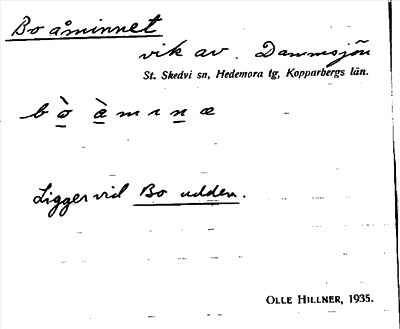 Bo åminnet
vik av Dammsjön
St. Skedvi sn, Hedemora tg, Kopparbergs län.
bò̱ à̱mıṉæ
Ligger vid Bo udden.
OLLE HILLNER, 1935.